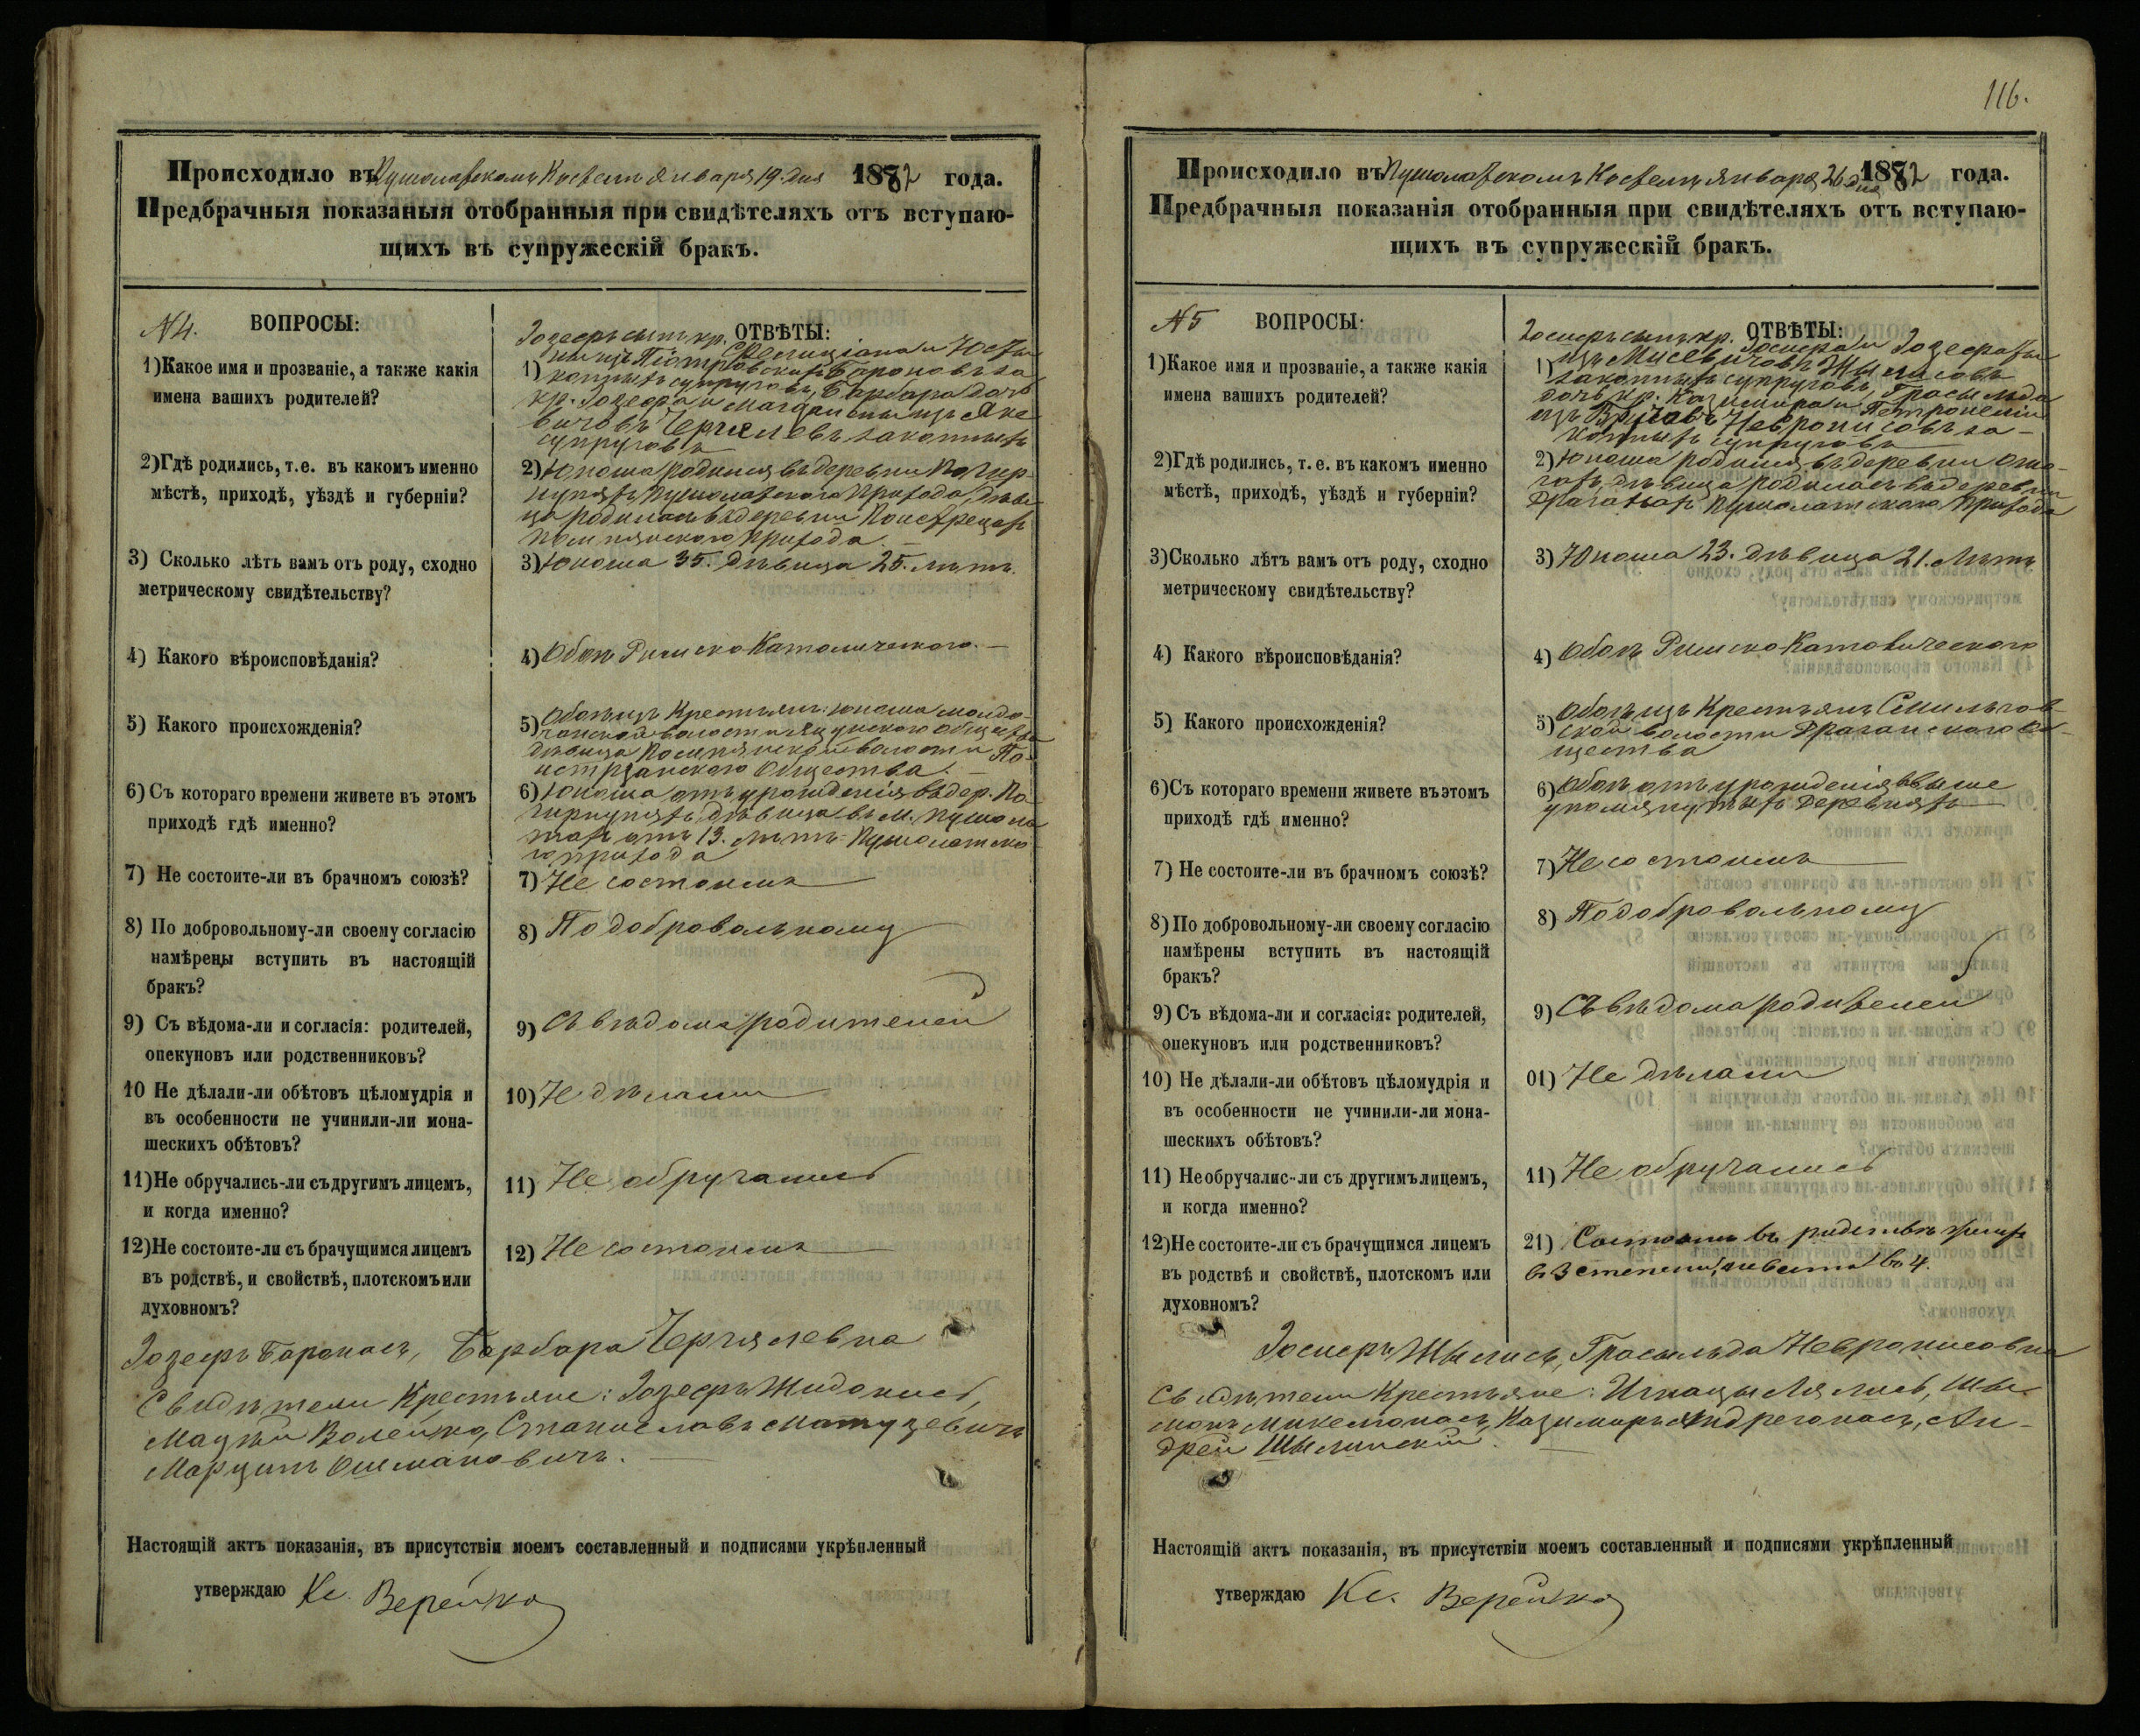 Происходило въ Пушолатскомъ Костелѣ Января 19. дня 1882 года.
Предбрачныя показаныя отобранныя при свидѣтеляхъ отъ вступаю-
щихъ въ супружескій бракъ.
№ 4. ВОПРОСЫ:
1) Какое имя и прозваніе, а также какія
имена вашихъ родителей?
2) Гдѣ родились, т. е. въ какомъ именно
мѣстѣ, приходѣ, уѣздѣ и губерніи?
3) Сколько лѣтъ вамъ отъ роду, сходно
метрическому свидѣтельству?
4) Какого вѣроисповѣданія?
5) Какого происхожденія?
6) Съ котораго времени живете въ этомъ
приходѣ гдѣ именно?
7) Не состоите-ли въ брачномъ союзѣ?
8) По добровольному-ли своему согласію
намѣрены вступить въ настоящій
бракъ?
9) Съ вѣдома-ли и согласія: родителей,
опекуновъ или родственниковъ?
10 Не дѣлали-ли обѣтовъ цѣломудрія и
въ особенности не учинили-ли мона-
шескихъ обѣтовъ?
11) Не обручались-ли съ другимъ лицемъ,
и когда именно?
12) Не состоите-ли съ брачущимся лицемъ
въ родствѣ, и свойствѣ, плотскомъ или
духовномъ?
ОТВѢТЫ:
Іозефъ сынъ кр. Фелиціана и Юсты-
ны изъ Піотровскихъ Бароновъ за-
1) конныхъ супруговъ, Барбара дочь
кр. Іозефа и Магдалены изъ Яке-
вичовъ законныхъ
супруговъ
2) Юноша родился въ деревни
Пушолатскаго Прихода, дѣви-
ца родилась въ деревни
Прихода.
3) Юноша 35. дѣвица 25. лѣтъ.
4) Обоихъ Римско Католическаго.
5) Обоихъ изъ Крестьянъ: юноша
волости Общества
дѣвица волости По-
Общества.
6) Юноша отъ урожденія въ дер. По-
дѣвица въ м. Пушола-
тахъ отъ 13. лѣтъ Пушолатска-
го прихода
7) Не состоимъ
8) По добровольному
9) Съ вѣдома родителей
10) Не дѣлали
11) Не обручались
12) Не состоимъ
Іозефъ Баронасъ, Барбара
Свидѣтели Крестьяне: Іозефъ Жидонисъ,
Мацѣй Волейко, Станиславъ Матузевичъ
Марцинъ Ошмановичъ.
Настоящій актъ показанія, въ присутствіи моемъ составленный и подписями укрѣпленный
утверждаю Кс. Верейко
116.
Происходило въ Пушолатскомъ Костелѣ Января 26 дня 1882 года.
Предбрачныя показанія отобранныя при свидѣтеляхъ отъ вступаю-
щихъ въ супружескій бракъ.
№ 5 ВОПРОСЫ:
1) Какое имя и прозваніе, а также какія
имена вашихъ родителей?
2) Гдѣ родились, т. е. въ какомъ именно
мѣстѣ, приходѣ, уѣздѣ и губерніи?
3) Сколько лѣтъ вамъ отъ роду, сходно
метрическому свидѣтельству?
4) Какого вѣроисповѣданія?
5) Какого происхожденія?
6) Съ котораго времени живете въ этомъ
приходѣ гдѣ именно?
7) Не состоите-ли въ брачномъ союзѣ?
8) По добровольному-ли своему согласію
намѣрены вступить въ настоящій
бракъ?
9) Съ вѣдома-ли и согласія: родителей,
опекуновъ или родственниковъ?
10) Не дѣлали-ли обѣтовъ цѣломудрія и
въ особенности не учинили-ли мона-
шескихъ обѣтовъ?
11) Не обручалис-ли съ другимъ лицемъ,
и когда именно?
12) Не состоите-ли съ брачущимся лицемъ
въ родствѣ и свойствѣ, плотскомъ или
духовномъ?
ОТВѢТЫ:
Іосифъ сынъ кр. Іосифа и Іозефаты
1) изъ
законныхъ супруговъ, Грасыльда
дочь кр. Казимира и Петронеліи
изъ Невронисовъ за-
конныхъ супруговъ
2) Юноша родился въ деревни
дѣвица родилась въ деревни
Драганахъ Пушолатскаго Прихода
3) Юноша 23. дѣвица 21. Лѣтъ
4) Обоихъ Римско Католическаго
5) Обоихъ изъ Крестьянъ Смильгов-
ской волости Драганскаго Об-
щества
6) Обоихъ отъ урожденія въ выше
упомянутыхъ деревняхъ
7) Не состоимъ
8) По добровольному
9) Съ вѣдома родителей
01) Не дѣлали
11) Не обручались
21) Состоимъ въ родствѣ
въ 3 степени, въ 4.
Іосифъ Жылисъ, Грасыльда Невронисовна
Свидѣтели Крестьяне: Игнацы Лялисъ, Шы-
монъ Микелёнасъ, Казимиръ Андрегонасъ, Ан-
дрей Шылинскій.
Настоящій актъ показанія, въ присутствіи моемъ составленный и подписями укрѣпленный
утверждаю Кс. Верейко